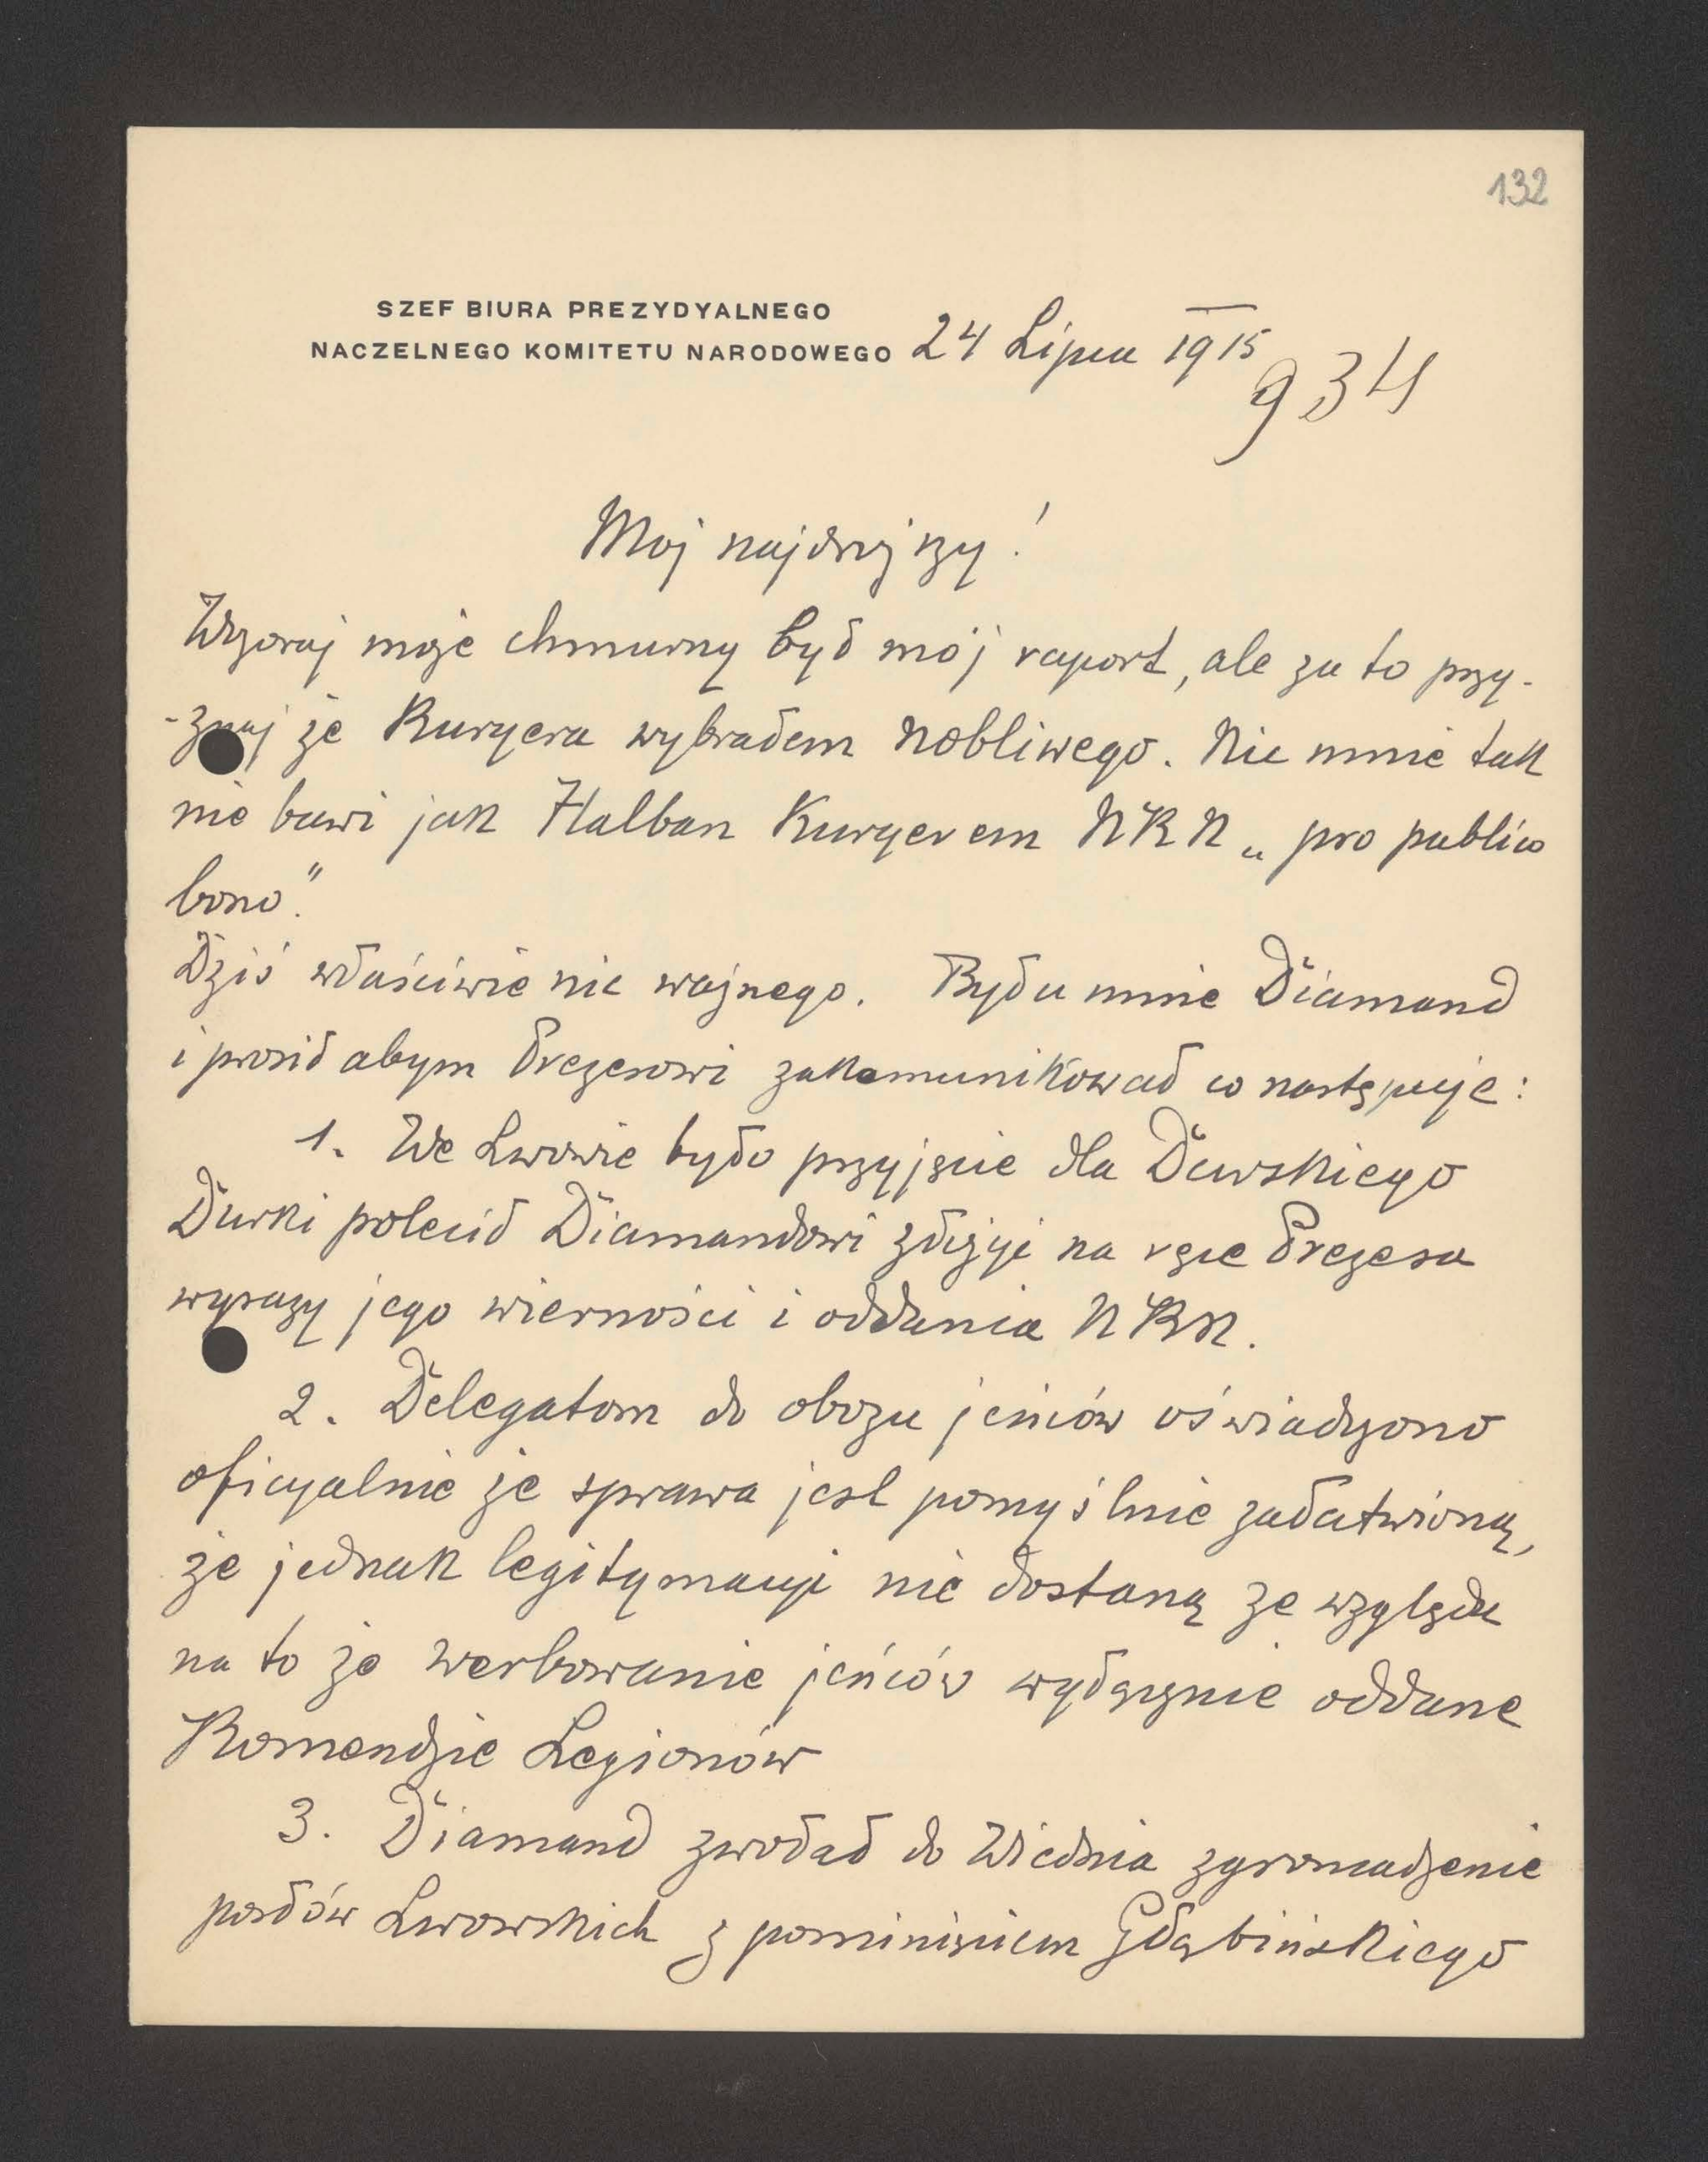 132
SZEF BIURA PREZYDYALNEGO
NACZELNEGO KOMITETU NARODOWEGO 24 Lipca 1915
934
Moj najdroższy!
Wczoraj może chmurny był mój raport, ale za to przy-
-znaj że Kuryera wybrałem nobliwego. Nic mnie tak
nie bawi jak Halban Kuryerem NKN „pro publico
bono".
Dziś właściwie nic ważnego. Był u mnie Diamand
i prosił abym Prezesowi zakomunikował co następuje:
1. We Lwowie było przyjęcie dla Durskiego
Durski polecił Diamandowi złożyć na ręce Prezesa
wyrazy jego wierności i oddania NKN.
2. Delegatom do obozu jeńców oświadczono
oficyalnie że sprawa jest pomyślnie załatwioną,
że jednak legitymacyi nie dostaną ze względu
na to że werbowanie jeńców wyłącznie oddane
Komendzie Legionów
3. Diamand zwołał do Wiednia zgromadzenie
posłów Lwowskich z pominięciem Głąbińskiego